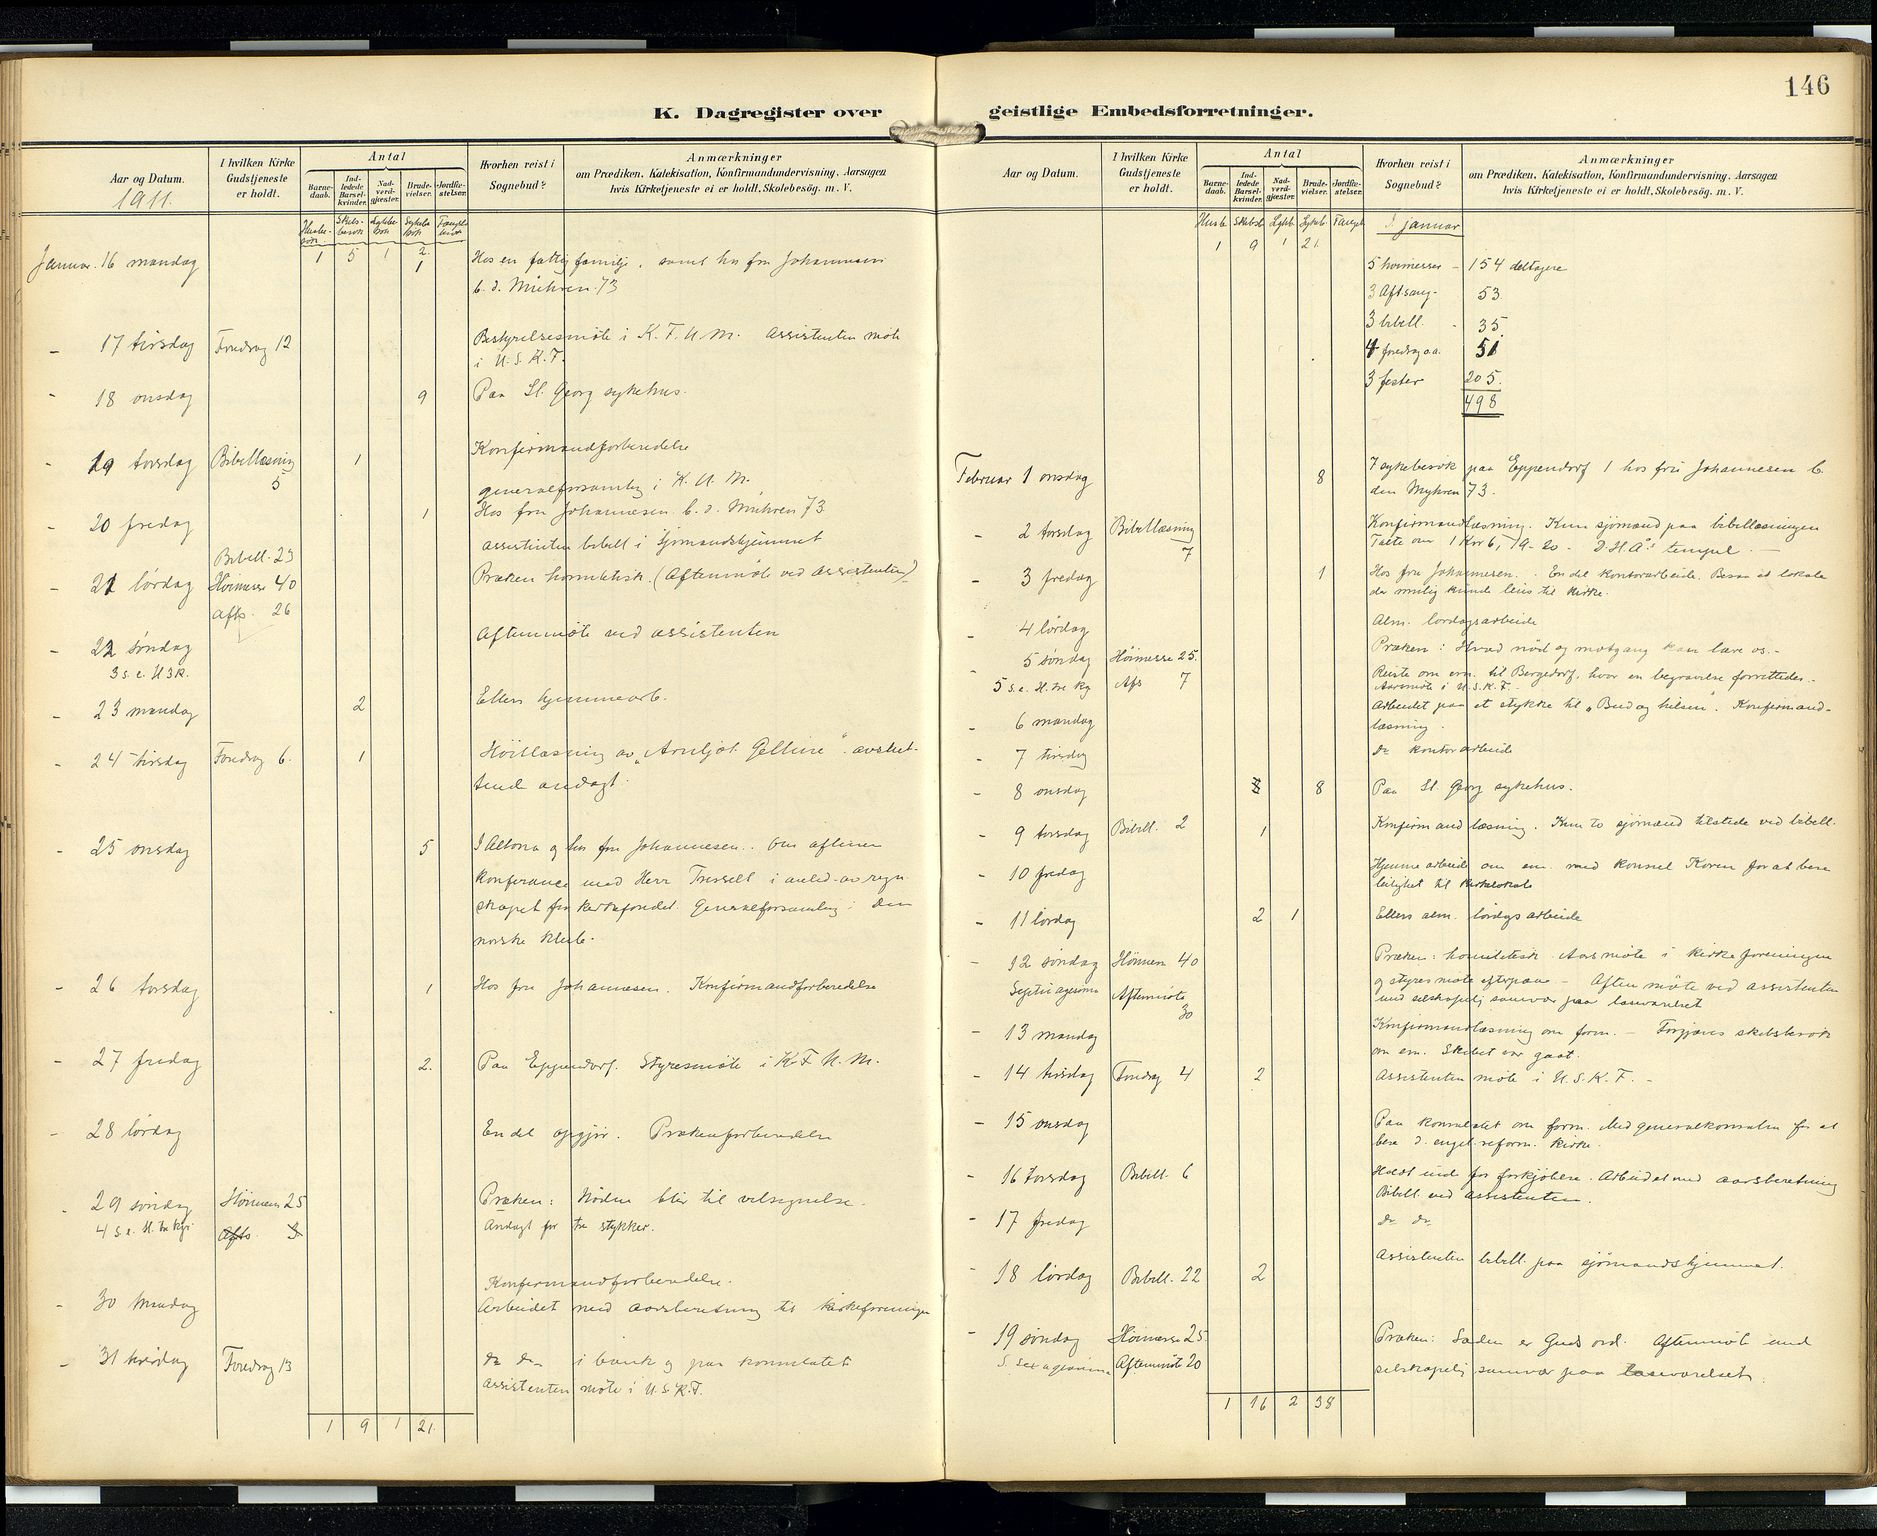 146
K. Dagregister over geistlige Embedsforretninger.
Aar og Datum.
1911.
I hvilken Kirke Gudstjeneste er holdt.
Antal
Barnedaab.
Indledede Barselkvinder.
Nadverdgjæster.
Brudevielser.
Jordfæstelser.
Hvorhen reist i Sognebud?
Anmærkninger
om Prædiken. Katekisation, Konfirmandundervisning. Aarsagen
hvis Kirketjeneste ei er holdt, Skolebesög. m. V.
1 5 1 2
Januar 16 mandag 1 Hos en fattig familje, samt hos fru Johannesen
b. d. Mühren 73
- 17 tirsdag Foredrag 12 Bestyrelsesmöte i K. F. U. M. Assistenten möte
i U. S. K. F.
- 18 onsdag 9 Paa St. Georg sykehus.
- 19 torsdag Bibellæsning 5 1 Konfirmandforberedelse
generalforsamlig i K. U. M.
- 20 fredag 1 Hos fru Johannesen b. d. Mühren 73
Bibell. 23 assistenten bibell i Sjömandshjemmet
- 21 lördag Höimesse 40 Præken homiletisk. (Aftenmöte ved assistenten)
Afts. 26
- 22 söndag Aftenmöte ved assistenten
3 s. e. H 3 K.
- 23 mandag 2 Ellers hjemmearb.
- 24 tirsdag Foredrag 6. 1 Höitlæsning av "Arnljot Gelline" avslut-
tende andagt.
- 25 onsdag 5 I Altona og hos fru Johannesen. Om aftenen
konferance med Herr Tresselt i anled. av regn
skapet for kirkefondet. Generalforsamling i Den
norske klub.
- 26 torsdag 1 Hos fru Johannesen. Konfirmandforberedelse
- 27 fredag 2. Paa Eppendorf. Styresmöte i K. F. U. M.
- 28 lördag En del opgjör. Prækenforberedelse
- 29 söndag Höimesse 25 Præken: Nöden blir til velsignelse.
4 s. e. H. tre kgr Afts. 3 Andagt for tre stykker.
Konfirmandforberedelse.
- 30 mandag Arbeidet med aarsberetning til kirkeforeningen
- 31 tirsdag Foredrag 13 do do i bank og paa konsulatet
Assistenten möte i U. S. K. F.
1 9 1 21.
Aar og Datum.
I hvilken Kirke Gudstjeneste er holdt.
Antal
Barnedaab.
Indledede Barselkvinder.
Nadverdgjæster.
Brudevielser.
Jordfæstelser.
Hvorhen reist i Sognebud?
Anmærkninger
om Prædiken. Katekisation, Konfirmandundervisning. Aarsagen
hvis Kirketjeneste ei er holdt, Skolebesög. m. V.
Husb. Skibsb. Sykb. Fængb. I januar
1 9 1 21.
5 höimesser - 154 deltagere
3 Aftsang - 53.
3 bibell. - 35.
4 foredrag o.a. 51
3 fester 205.
498
Februar 1 onsdag 8 7 sykebesök paa Eppendorf 1 hos fru Johannesen b.
den Myhren 73.
- 2 torsdag Bibellæsning 7 Konfirmandlæsning. Kun sjömænd paa bibellæsningen
Talte om 1 Kor 6, 19-20 - D. H. A's tempel. -
- 3 fredag 1 Hos fru Johannesen. En del kontorarbeide. Besaa et lokale
der mulig kunde leies til kirke.
- 4 lördag Alm. lördagsarbeide
- 5 söndag Höimesse 25. Præken: Hvad nöd og motgang kan lære os. -
5 s. e. H. tre kg Afs 7 Reiste om em. til Bergedorf, hvor en begravelse forrettedes. -
Aarsmöte i U. S. K. F. -
- 6 mandag Arbeidet paa et stykke til "Bud og hilsen". Konfirmand-
læsning.
- 7 tirsdag do kontorarbeide
- 8 onsdag 8 Paa St. Georg sykehus.
- 9 torsdag Bibell. 2 1 Konfirmandlæsning. Kun to sjömænd tilstede ved bibell.
- 10 fredag Hjemmearbeide om em. med konsul Koren for at bese
leilighet til kirkelokale
- 11 lördag 2 1 Ellers alm. lördagsarbeide
- 12 söndag Höimess 40 Præken: homiletisk. Aarsmöte i kirkeforeningen
Septuagesima Aftenmöte 30 og styresmöte efterpaa - Aftenmöte ved assistenten
med selskapelig samvær paa læseværelset
- 13 mandag Konfirmandlæsning om form. - Forgjæves skibsbesök
om em. Skibet var gaat.
- 14 tirsdag Foredrag 4 2 Assistenten möte i U. S. K. F. -
- 15 onsdag Paa konsulatet om form. Med generalkonsulen for at
bese d. engel. reform. kirke.
- 16 torsdag Bibell. 6 Holdt inde for forkjölelse. Arbeidet med aarsberetning
Bibell. ved assistenten.
- 17 fredag do do
- 18 lördag Bibell. 22 2 Assistenten bibell. paa sjömandshjemmet.
- 19 söndag Höimesse 25. Præken: Sæden er Guds ord. Aftenmöte med
S. Sexagesima Aftenmöt 20 selskapelig samvær paa læseværelset.
1 16 2 38